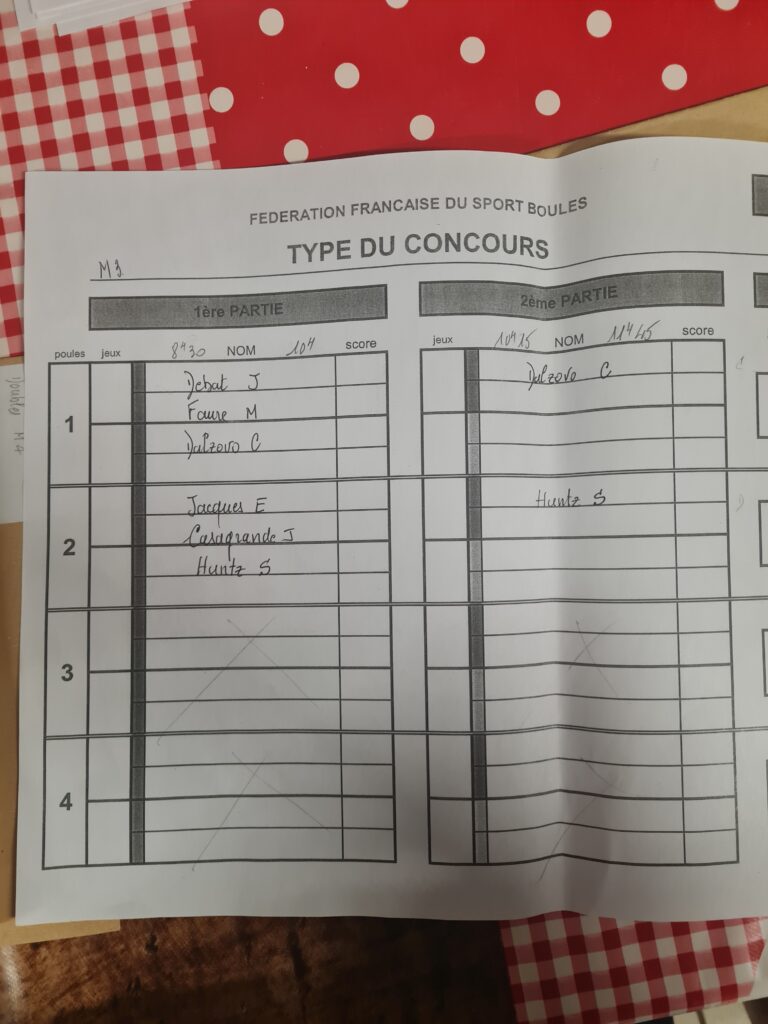 FEDERATION FRANCAISE DU SPORT BOULES
TYPE DU CONCOURS
M3
1ère PARTIE
2ème PARTIE
poules jeux 8H30 NOM 10H score
jeux 10H15 NOM 11H45 score
1
Debat J
Faure M
Dalzovo C
Dalzovo C
2
Jacques E
Casagrande J
Huntz S
Huntz S
3
4
Doubles M4